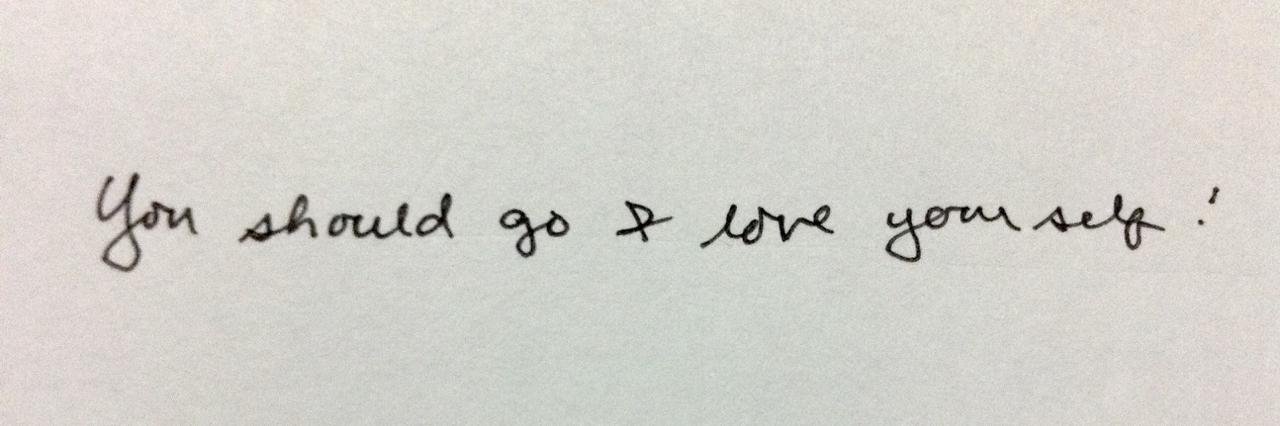 You should go & love yourself!